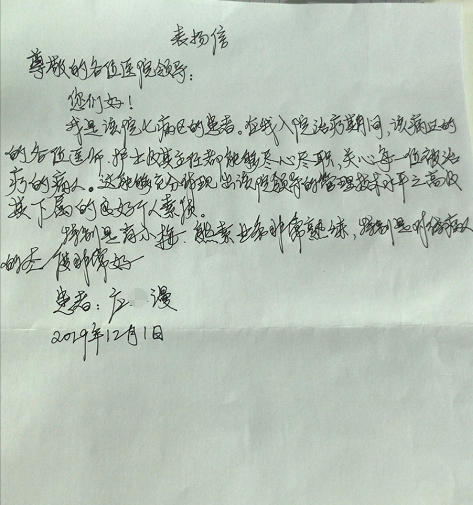 表扬信
尊敬的各位医院领导:
您们好!
我是该院七病区的患者。在我入院治疗期间,该病区的
的各位医师、护士及其主任都能够尽心尽职,关心每一位被治
疗的病人。这能够充分体现出该院领导的管理技术水平之高及
其下属的良好个人素质。
特别是有小梅、业务非常熟练,特别是对待病人
的态度非常好
患者:
2019年12月1日